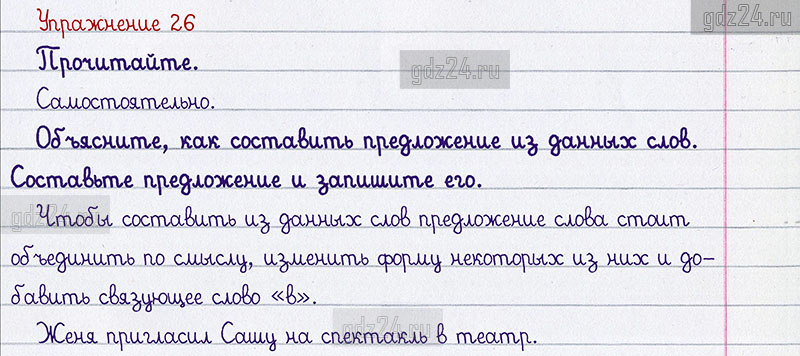 Упражнение 26
gdz24.ru
Прочитайте.
gdz24.ru
Самостоятельно.
Объясните, как составить предложение из данных слов.
Составьте предложение и запишите его.
gdz24.ru
Чтобы составить из данных слов предложение слова стоит
объединить по смыслу, изменить форму некоторых из них и до-
бавить связующее слово «в».
gdz24.ru
Женя пригласил Сашу на спектакль в театр.